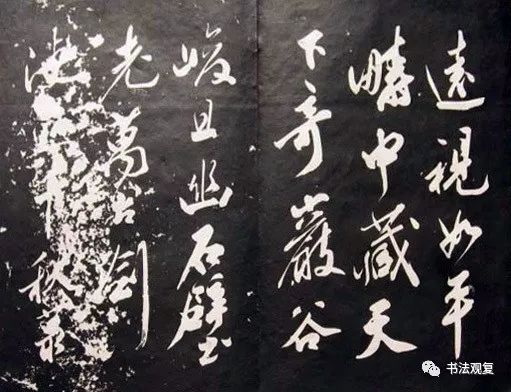 遠視如平
疇中藏天
下奇巖谷
峻且幽石壁
老萬古劍
池千秋
书法观复